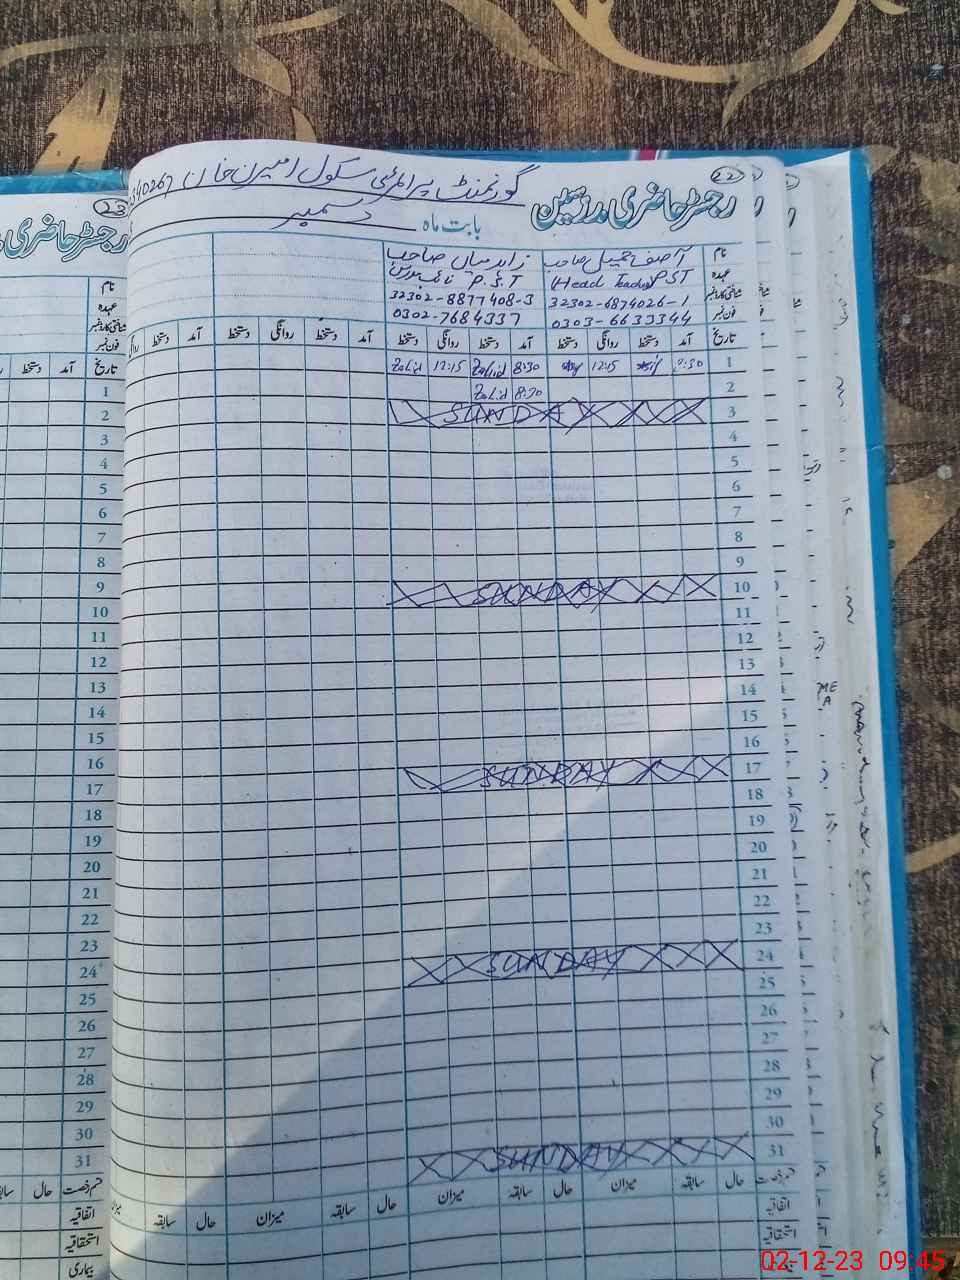 22
رجسٹر حاضری مدرسین
گورنمنٹ پرائمری سکول امیرن خان
بابت ماہ دسمبر
نام آصف جمیل صاحب زاہد میاں صاحب
عہدہ (Head Teacher) PST P.S.T
شناختی کارڈ نمبر 32302-6874026-1 32302-8877408-3
فون نمبر 0303-6633344 0302-7684337
تاریخ آمد دستخط روانگی دستخط آمد دستخط روانگی دستخط آمد دستخط روانگی دستخط آمد دستخط
1 8:30 Zahid 12:15 Zahid 12:15
2 8:30 Zahid
3 SUNDAY
4
5
6
7
8
9
10 SUNDAY
11
12
13
14
15
16
17 SUNDAY
18
19
20
21
22
23
24 SUNDAY
25
26
27
28
29
30
31 SUNDAY
قسم رخصت حال سابقہ میزان حال سابقہ میزان حال سابقہ میزان حال سابقہ
23
رجسٹر حاضری
نام
عہدہ
شناختی کارڈ نمبر
فون نمبر
تاریخ آمد دستخط
1
2
3
4
5
6
7
8
9
10
11
12
13
14
15
16
17
18
19
20
21
22
23
24
25
26
27
28
29
30
31
قسم رخصت حال سابقہ
اتفاقیہ
استحقاقیہ
بیماری
ME
A
02-12-23 09:45